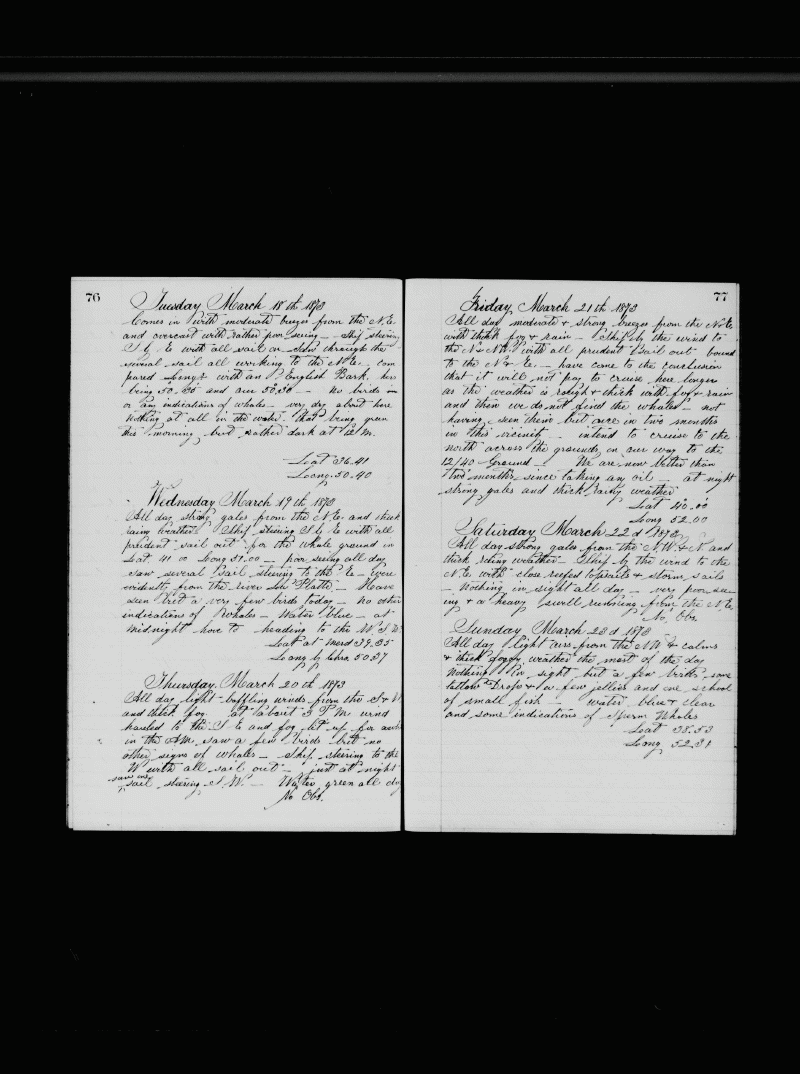 76
Tuesday March 18th 1873
Comes in with moderate breezes from the N.E.
and overcast with rather poor seeing - Ship steering
S by E with all sail on - Saw through the
several sail all working to the N.E. Com
pared Longt with an English Bark, his
being 50.30 and our 50.50 - No birds
or any indications of whales - very dry about here
Nothing at all in the water that being green
this morning but rather dark at 12 M.
Lat 36.41
Loong. 50.40
Wednesday March 19th 1873
All day strong gales from the N.E. and thick
rainy weather. Ship steering S by E with all
prudent sail out for the whale ground in
Lat. 41 00 Long 51.00 - poor seeing all day
saw several Sail steering to the E - were
evidently from the river La Platte - Have
seen but a very few birds today - No other
indications of Whales - Water blue - at
midnight hove to heading to the W.S.W
Lat at Merd 39.35
Loong by Chro. 50.37
Thursday, March 20th 1873
All day light baffling winds from the S & W
and thick fog. at about 3 P M wind
hauled to the S E and fog let up for a
in the P.M. saw a few birds but no
other signs of whales - Ship steering to the
W with all sail out - just at night
saw one
sail steering N.W. - Water green all day
No Obs.
77
Friday, March 21th 1873
All day moderate & strong breezes from the N & E
with thick fog & rain - Ship by the wind to
the N & with all prudent Sail out bound
to the N & E. - have come to the conclusion
that it will not pay to cruise here longer
as the weather is rough & thick with fog & rain
and then we do not find the whales - not
having seen them but once in two months
in this vicinity - intend to cruise to the
north across the grounds, on our way to the
12/40 Ground - We are now better than
two months since taking any oil - at night
strong gales and thick rainy weather
Lat 40.00
Long 52.00
Saturday March 22d 1873
All day strong gales from the N.W. & N and
thick rainy weather - Ship by the wind to the
N.E. with close reefed topsails & storm sails
- Nothing in sight all day - very poor see-
ing & a heavy swell running from the N.E.
No Obs.
Sunday March 23d 1873
All day light airs from the N W & calms
& thick foggy weather the most of the day
Nothing in sight but a few birds, some
tallow Drops & a few jellies and one school
of small fish - water blue & clear
and some indications of Sperm Whales
Lat 38.53
Long 52.31